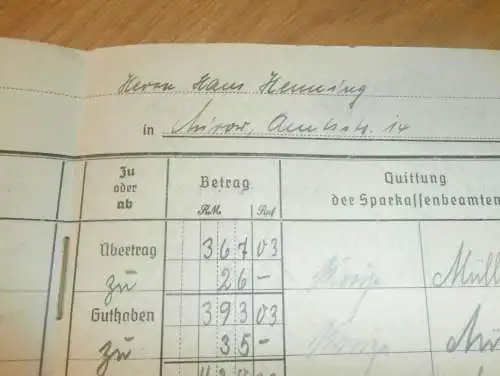 Herrn Hans Henning
in Mirow, Amtsstr. 14
Zu oder ab
Betrag
RM. Rpf
Quittung der Sparkassenbeamten
Übertrag 367 03
zu 26 -
Guthaben 393 03
zu 35 -